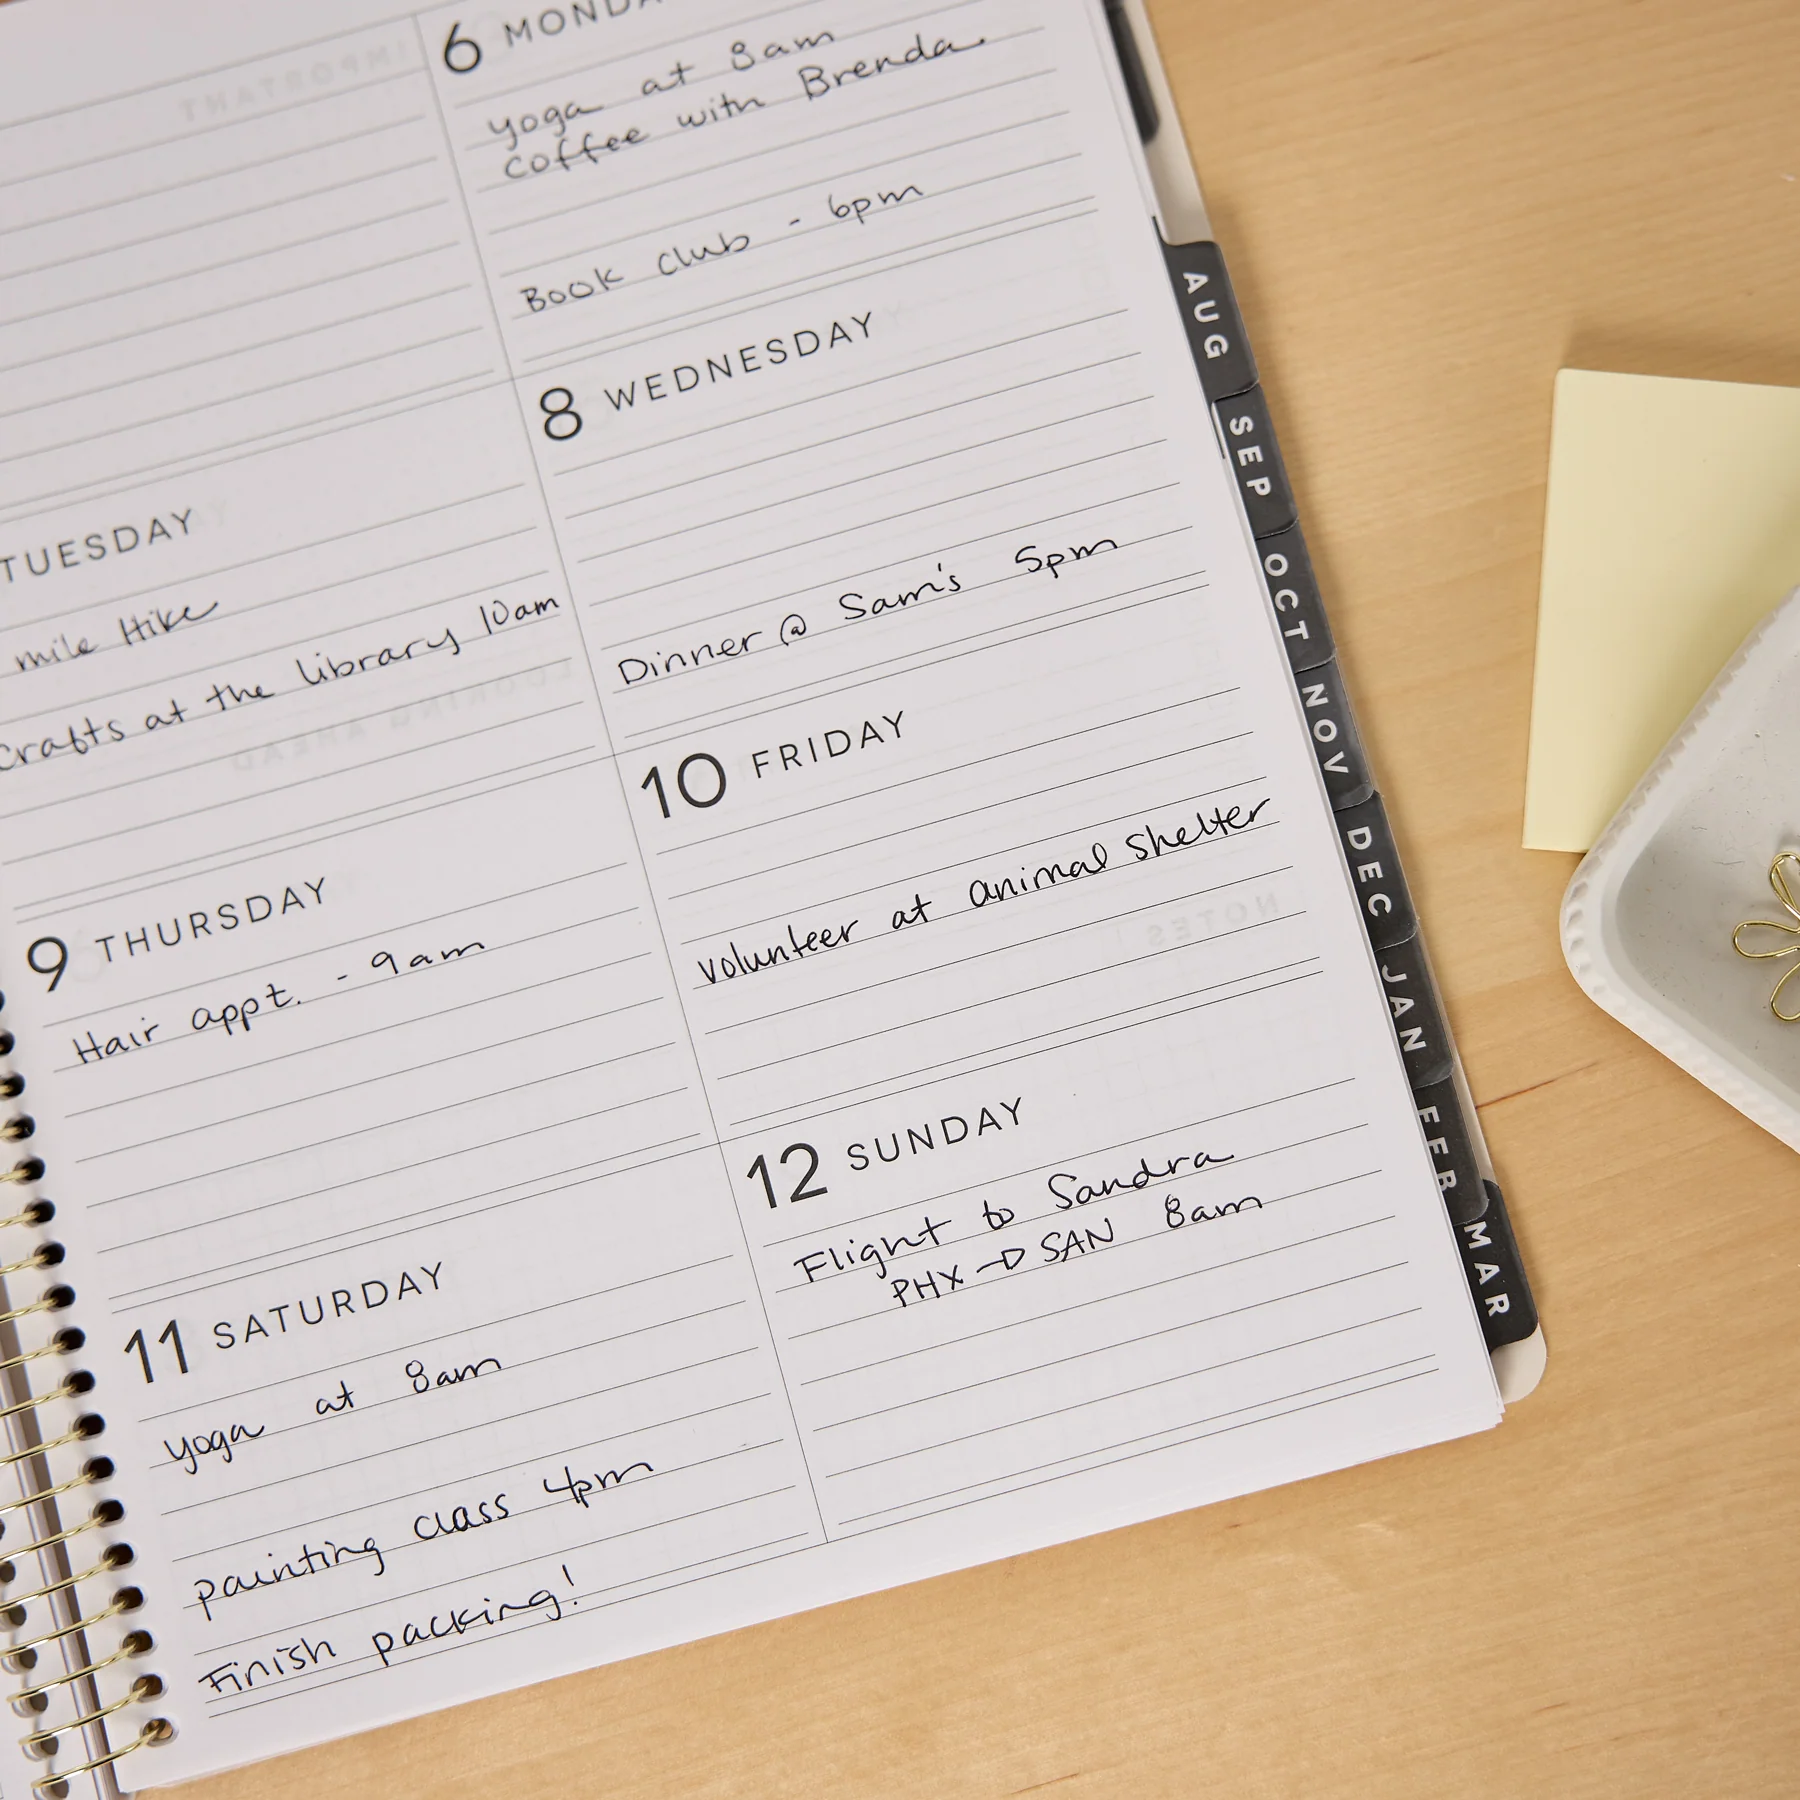 6 MONDA
yoga at 8am
coffee with Brenda
Book club - 6pm
TUESDAY
mile Hike
crafts at the library 10am
8 WEDNESDAY
Dinner @ Sam's 5pm
9 THURSDAY
Hair appt. - 9am
10 FRIDAY
volunteer at animal shelter
11 SATURDAY
yoga at 8am
painting class 4pm
Finish packing!
12 SUNDAY
Flight to Sandra
PHX → SAN 8am
AUG
SEP
OCT
NOV
DEC
JAN
FEB
MAR
IMPORTANT
LOOKING
AHEAD
NOTES